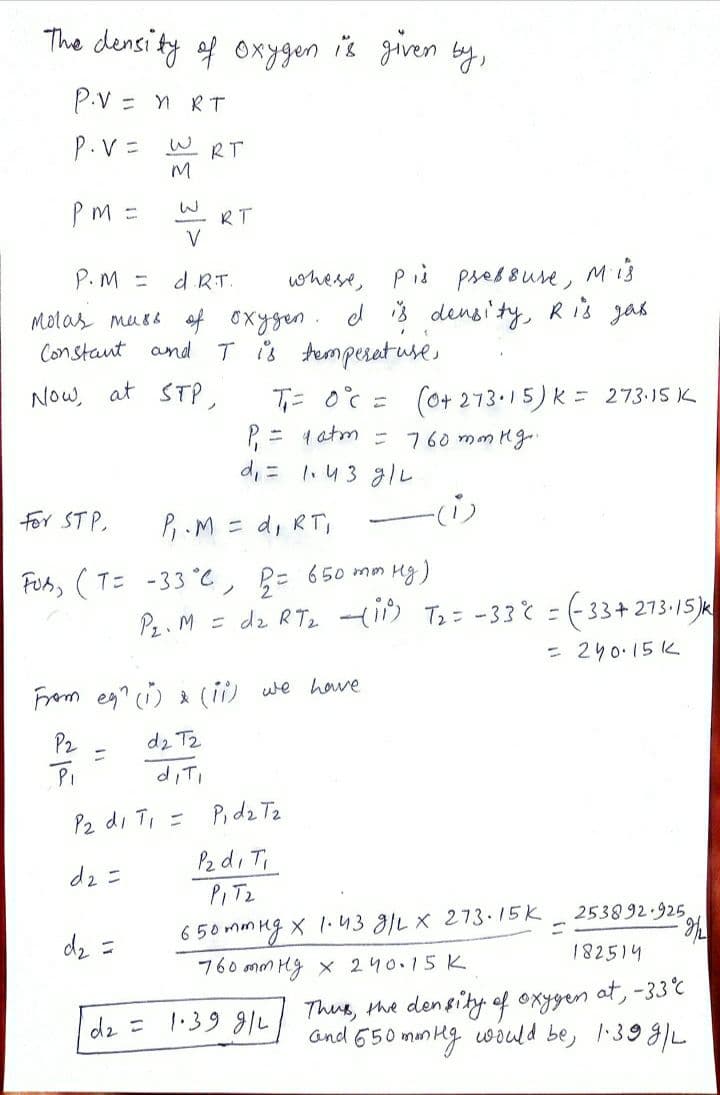 The density of oxygen is given by,
P.V = n RT
P.V = W/M RT
PM = W/V RT
P.M = d.RT. where, P is pressure, M is
Molar mass of oxygen. d is density, R is gas
Constant and T is temperature,
Now, at STP, T₁= 0°C = (0+273.15)K = 273.15 K
P₁ = 1 atm = 760 mm Hg.
d₁ = 1.43 g/L
For STP, P₁.M = d₁ RT₁ —(i)
For, (T= -33°C, P₂= 650 mm Hg)
P₂.M = d₂ RT₂ —(ii) T₂ = -33°C = (-33+273.15)K
= 240.15 K
From eqⁿ (i) & (ii) we have
P₂/P₁ = d₂T₂/d₁T₁
P₂ d₁ T₁ = P₁ d₂ T₂
d₂ = P₂ d₁ T₁/P₁ T₂
d₂ = 650 mm Hg x 1.43 g/L x 273.15K/760 mm Hg x 240.15 K = 253892.925/182514 g/L
d₂ = 1.39 g/L
Thus, the density of oxygen at, -33°C
and 650 mm Hg would be, 1.39 g/L